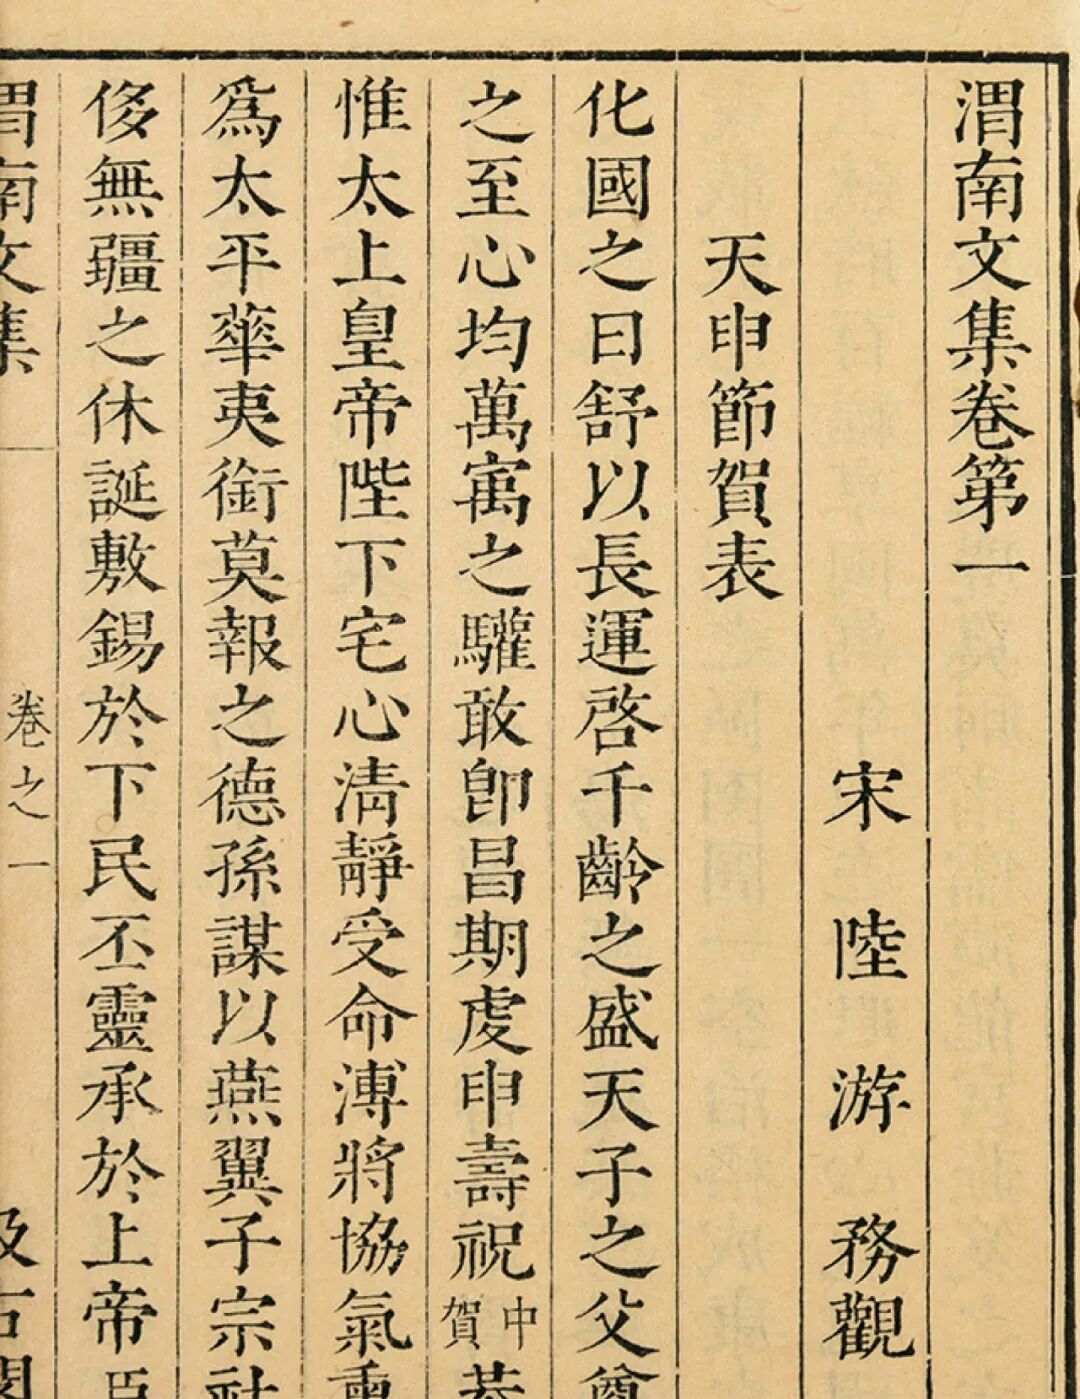 渭南文集卷第一
宋 陸 游 務觀
天申節賀表
化國之日舒以長運啓千齡之盛天子之父尊
之至心均萬㝢之驩敢卽昌期虔申壽祝中賀恭
惟太上皇帝陛下宅心淸靜受命溥將協氣熏
爲太平華夷銜莫報之德孫謀以燕翼子宗社
侈無疆之休誕敷錫於下民丕靈承於上帝臣
渭南文集
卷之一
汲古閣